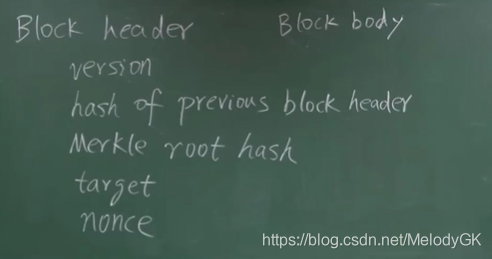 Block header Block body
version
hash of previous block header
Merkle root hash
target
nonce
https://blog.csdn.net/MelodyGK